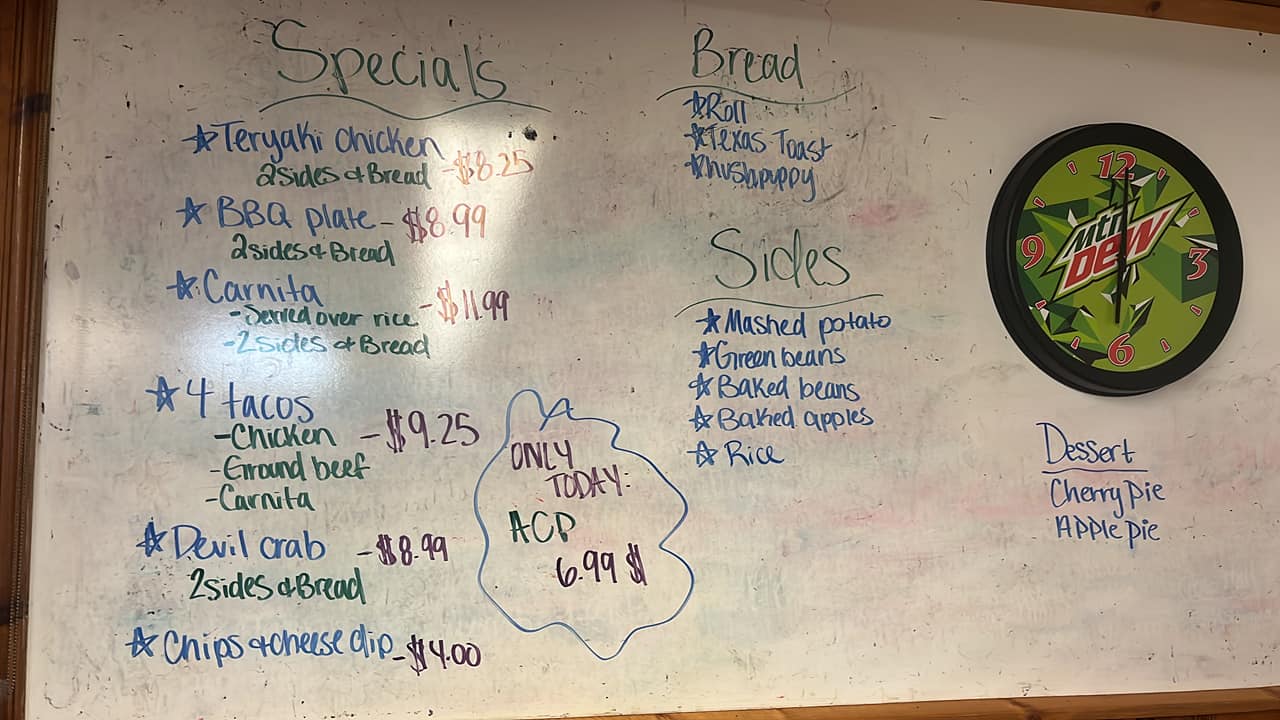 Specials
☆Teryaki chicken
2sides & Bread -$8.25
☆ BBQ plate - $8.99
2sides & Bread
☆ Carnita
-Served over rice - $11.99
-2sides & Bread
☆ 4 tacos
-Chicken - $9.25
-Ground beef
-Carnita
☆ Devil crab - $8.99
2sides & Bread
☆ Chips & cheese dip - $4.00
ONLY
TODAY:
ACP
6.99 $
Bread
☆Roll
☆Texas Toast
☆hushpuppy
Sides
☆ Mashed potato
☆Green beans
☆ Baked beans
☆ Baked apples
☆ Rice
12
9
3
6
mtn
DEW
Dessert
Cherry pie
Apple pie